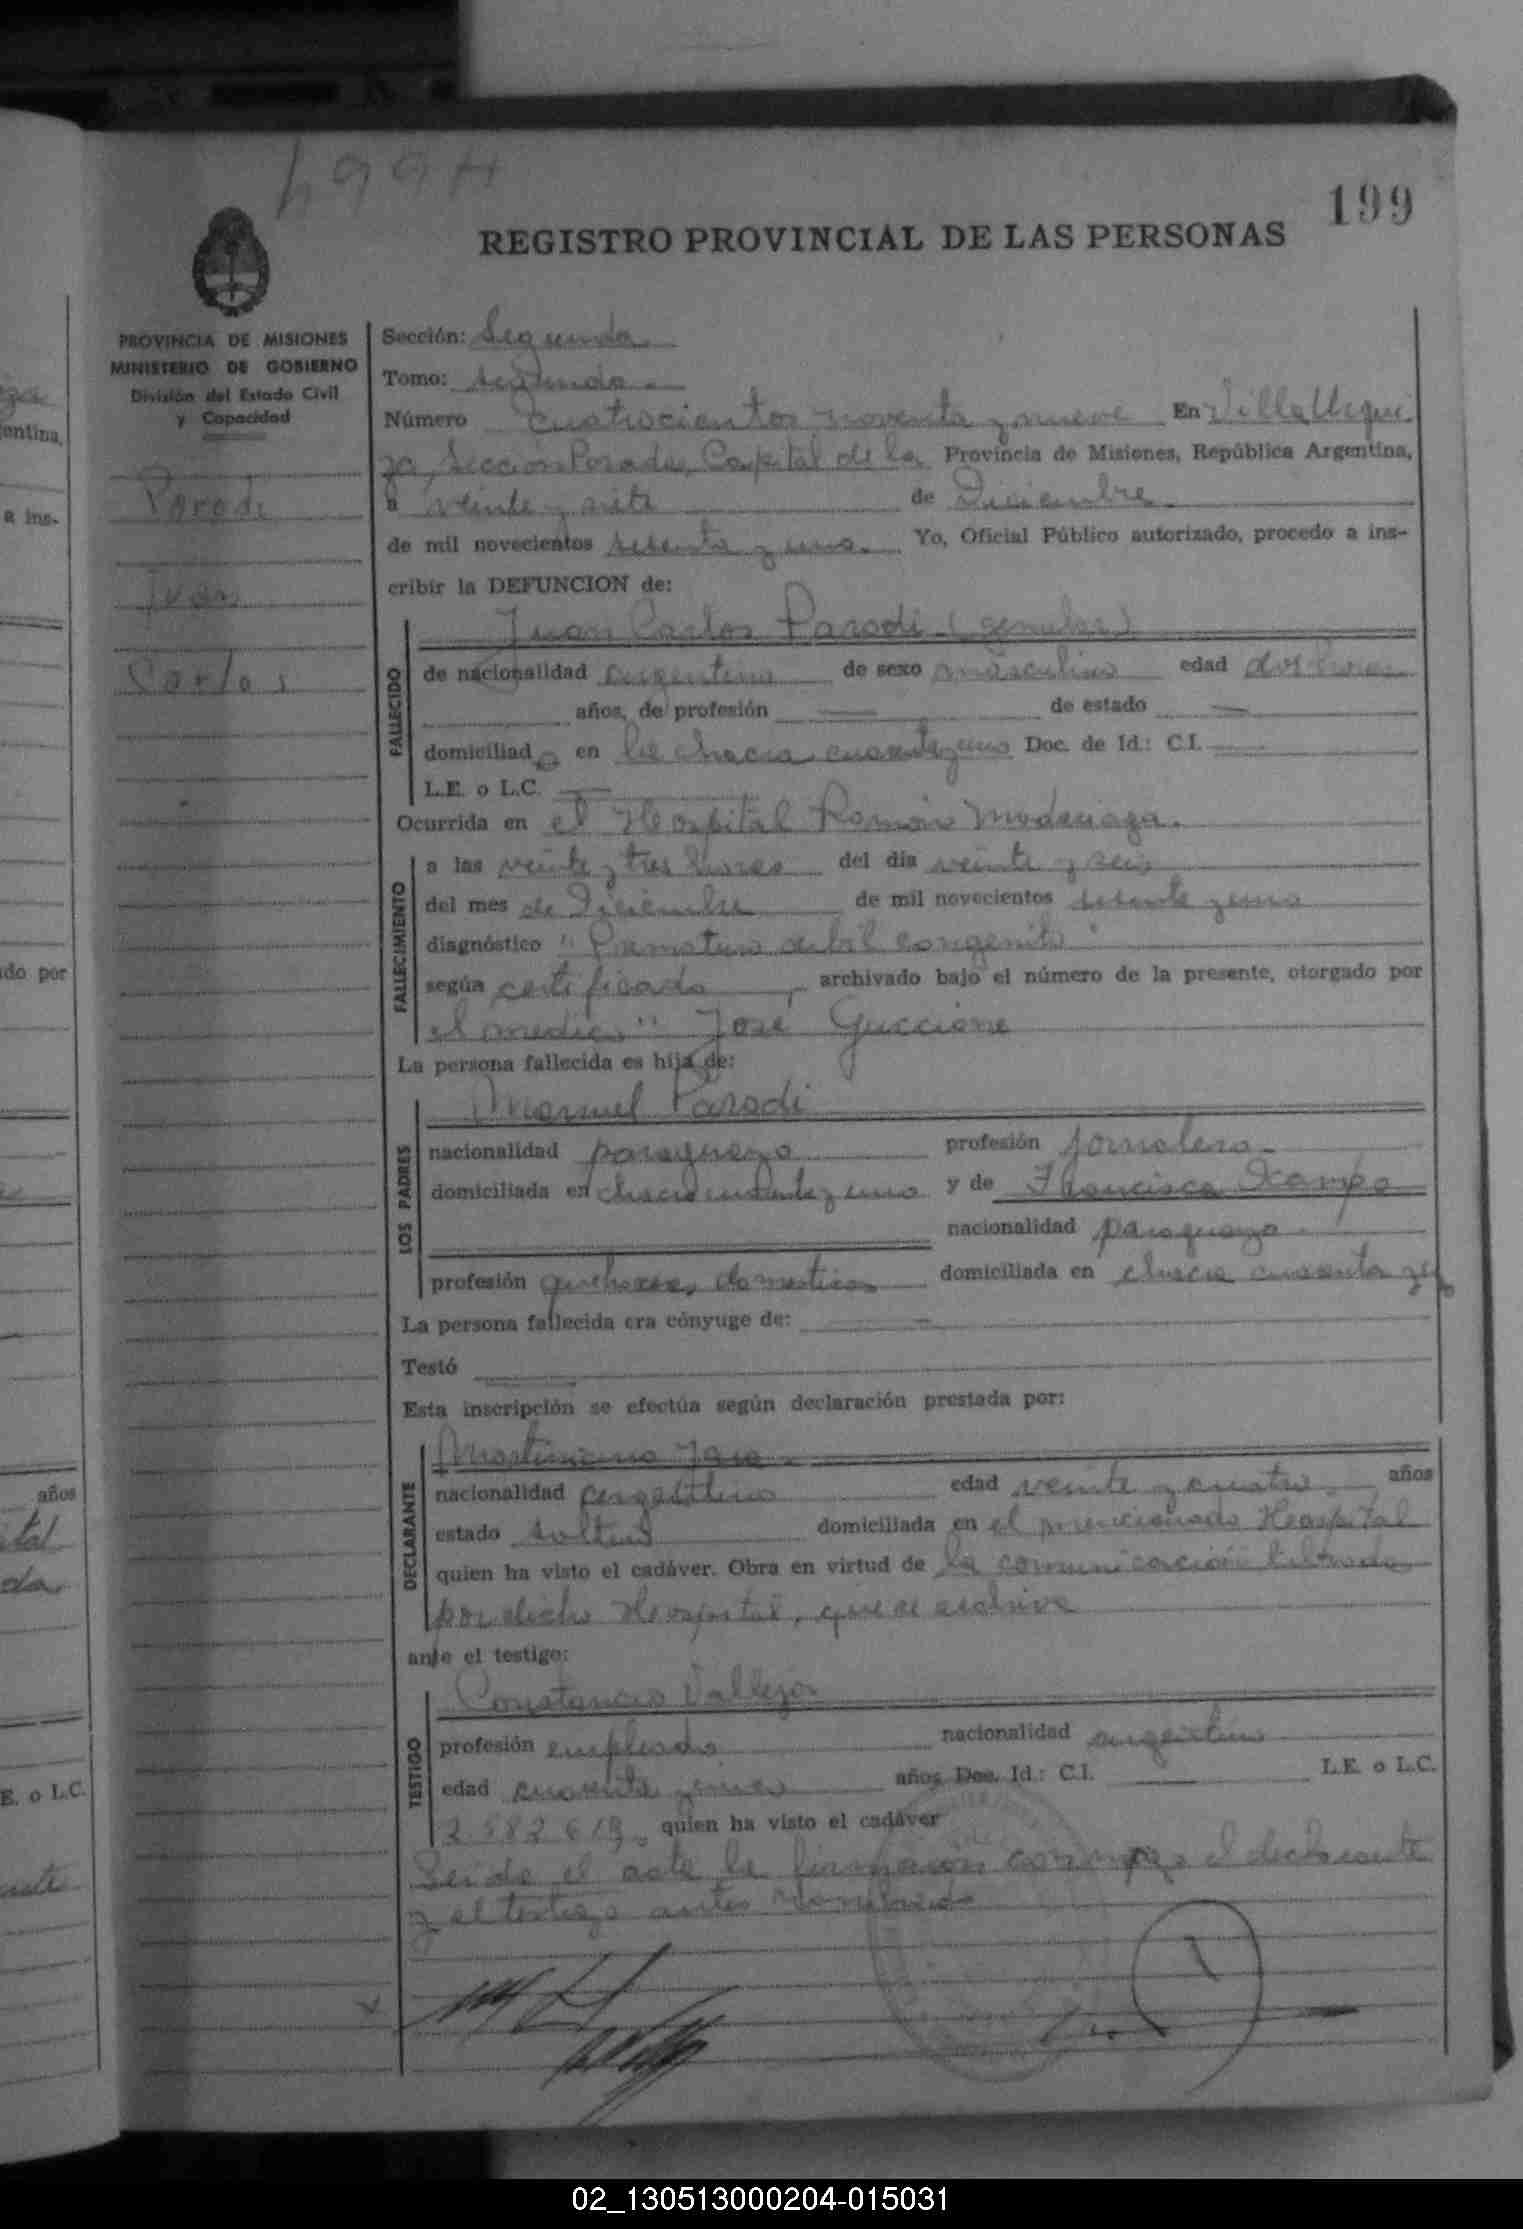 499 H
199
REGISTRO PROVINCIAL DE LAS PERSONAS
PROVINCIA DE MISIONES
MINISTERIO DE GOBIERNO
División del Estado Civil
y Capacidad
Parodi
Juan
Carlos
Sección: Segunda
Tomo: segundo
Número cuatrocientos noventa y nueve En Villa Urqui
za, Sección Posadas, Capital de la Provincia de Misiones, República Argentina,
a veinte y siete de Diciembre
de mil novecientos sesenta y uno. Yo, Oficial Público autorizado, procedo a ins-
cribir la DEFUNCION de:
Juan Carlos Parodi (gemelar)
FALLECIDO
de nacionalidad argentino de sexo masculino edad dos horas
años, de profesión — de estado —
domiciliado en la chacra cuarenta y uno Doc. de Id.: C.I.
L.E. o L.C. —
Ocurrida en el Hospital Ramón Madariaga.
FALLECIMIENTO
a las veinte y tres horas del día veinte y seis
del mes de Diciembre de mil novecientos sesenta y uno
diagnóstico "Prematuro debil congenito"
según certificado, archivado bajo el número de la presente, otorgado por
el medico José Guccione
La persona fallecida es hija de:
LOS PADRES
Manuel Parodi
nacionalidad paraguayo profesión jornalero
domiciliada en chacra cuarenta y uno y de Francisca Ocampo
nacionalidad paraguaya
profesión quehaceres domesticos domiciliada en chacra cuarenta y uno
La persona fallecida era cónyuge de: —
Testó
Esta inscripción se efectúa según declaración prestada por:
DECLARANTE
Martiniano Jara
nacionalidad argentino edad veinte y cuatro años
estado soltero domiciliada en el mencionado Hospital
quien ha visto el cadáver. Obra en virtud de la comunicación librada
por dicho Hospital, que se archiva
ante el testigo:
TESTIGO
Constancio Vallejos
profesión empleado nacionalidad argentino
edad cuarenta y cinco años Doc. Id.: C.I. — L.E. o L.C.
2.582.619. quien ha visto el cadáver
Leida el acta la firmaron conmigo el declarante
y el testigo antes nombrado
años
entina,
a ins-
do por
E. o L.C.
02_130513000204-015031